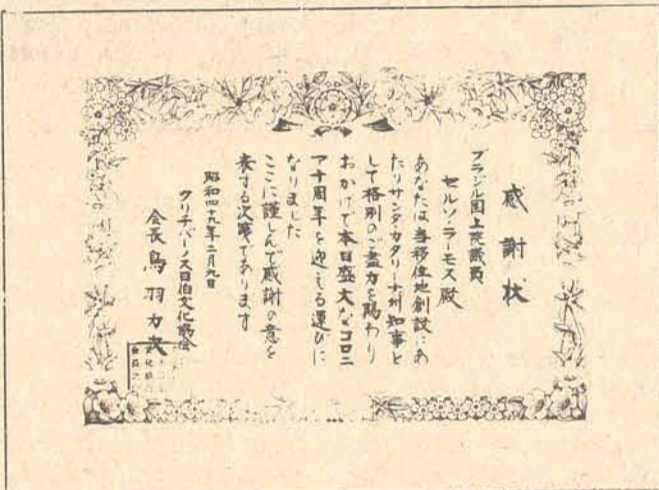 感謝状
ブラジル国上院議員
セルソ・ラーモス殿
あなたは当移住地創設にあ
たりサンタ・カタリーナ州知事と
して格別のご盡力を賜わり
おかげで本日盛大なコロニ
ア十周年を迎える運びに
なりました
ここに謹しんで感謝の意を
表する次第であります
昭和四十九年二月九日
クリチバーノス日伯文化協会
会長鳥羽力